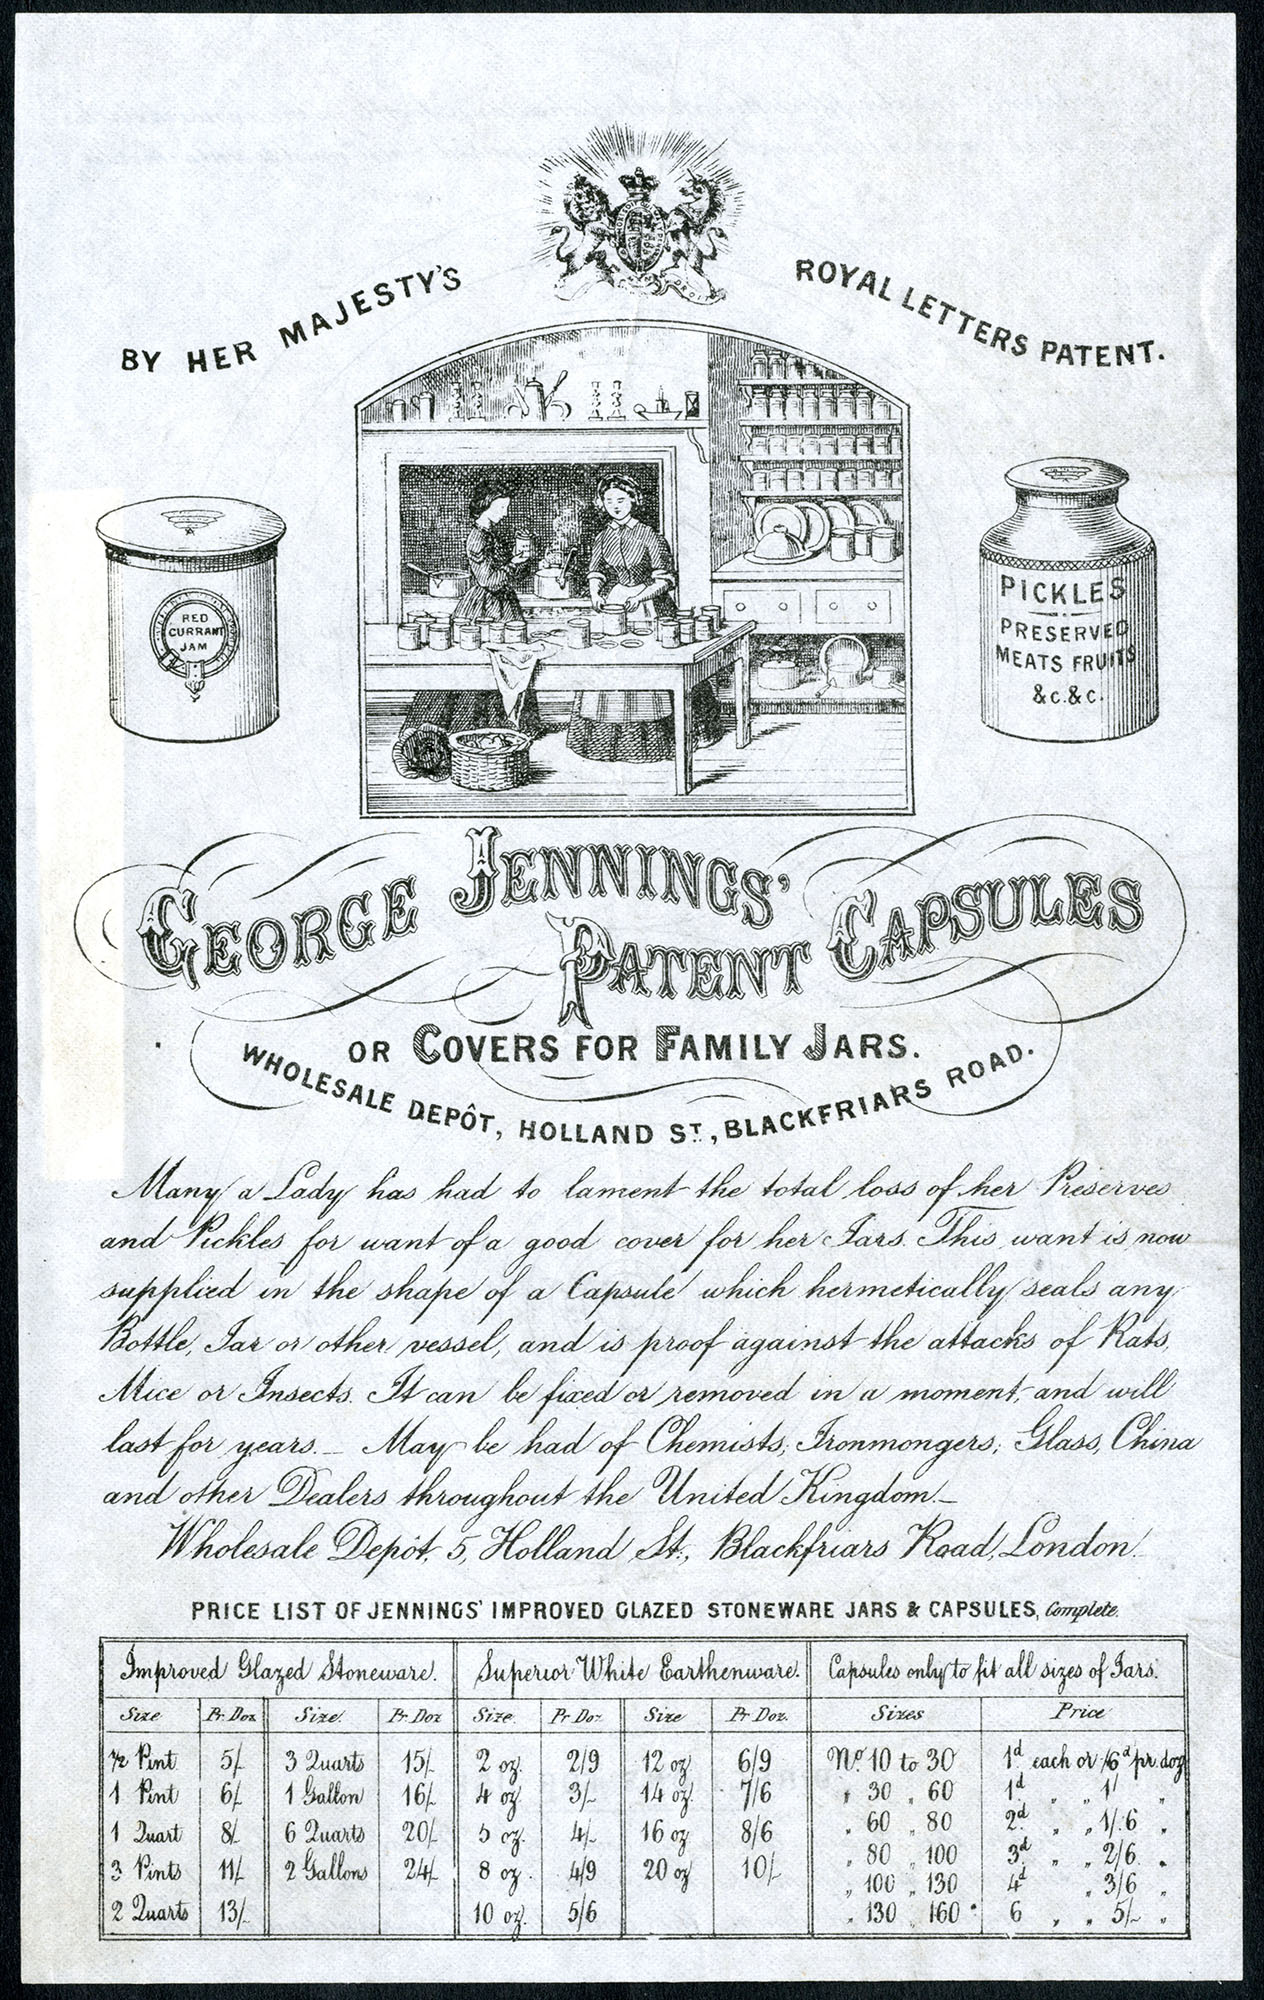 BY HER MAJESTY'S ROYAL LETTERS PATENT.
RED
CURRANT
JAM
PICKLES
PRESERVED
MEATS FRUITS
&c. &c.
GEORGE JENNINGS'
PATENT CAPSULES
OR COVERS FOR FAMILY JARS.
WHOLESALE DEPÔT, HOLLAND ST., BLACKFRIARS ROAD.
Many a Lady has had to lament the total loss of her Preserves
and Pickles for want of a good cover for her Jars. This want is now
supplied in the shape of a Capsule which hermetically seals any
Bottle, Jar or other vessel, and is proof against the attacks of Rats,
Mice or Insects. It can be fixed or removed in a moment, and will
last for years. — May be had of Chemists, Ironmongers, Glass, China
and other Dealers throughout the United Kingdom. —
Wholesale Depôt, 5, Holland St., Blackfriars Road, London.
PRICE LIST OF JENNINGS' IMPROVED GLAZED STONEWARE JARS & CAPSULES, Complete.
Improved Glazed Stoneware. Superior White Earthenware. Capsules only to fit all sizes of Jars.
Size Pr. Doz Size. Pr. Doz Size. Pr Doz. Size Pr Doz. Sizes Price
1/2 Pint 5/- 3 Quarts 15/- 2 oz. 2/9 12 oz 6/9 No. 10 to 30 1d each or /6d pr. doz
1 Pint 6/- 1 Gallon 16/- 4 oz 3/- 14 oz. 7/6 " 30 " 60 1d " " 1/ "
1 Quart 8/- 6 Quarts 20/- 5 oz. 4/- 16 oz 8/6 " 60 " 80 2d " " 1/.6 "
3 Pints 11/- 2 Gallons 24/- 8 oz. 4/9 20 oz 10/- " 80 " 100 3d " " 2/6 "
" 100 " 130 4d " 3/6 "
2 Quarts 13/- 10 oz. 5/6 " 130 " 160 6 " " 5/- "